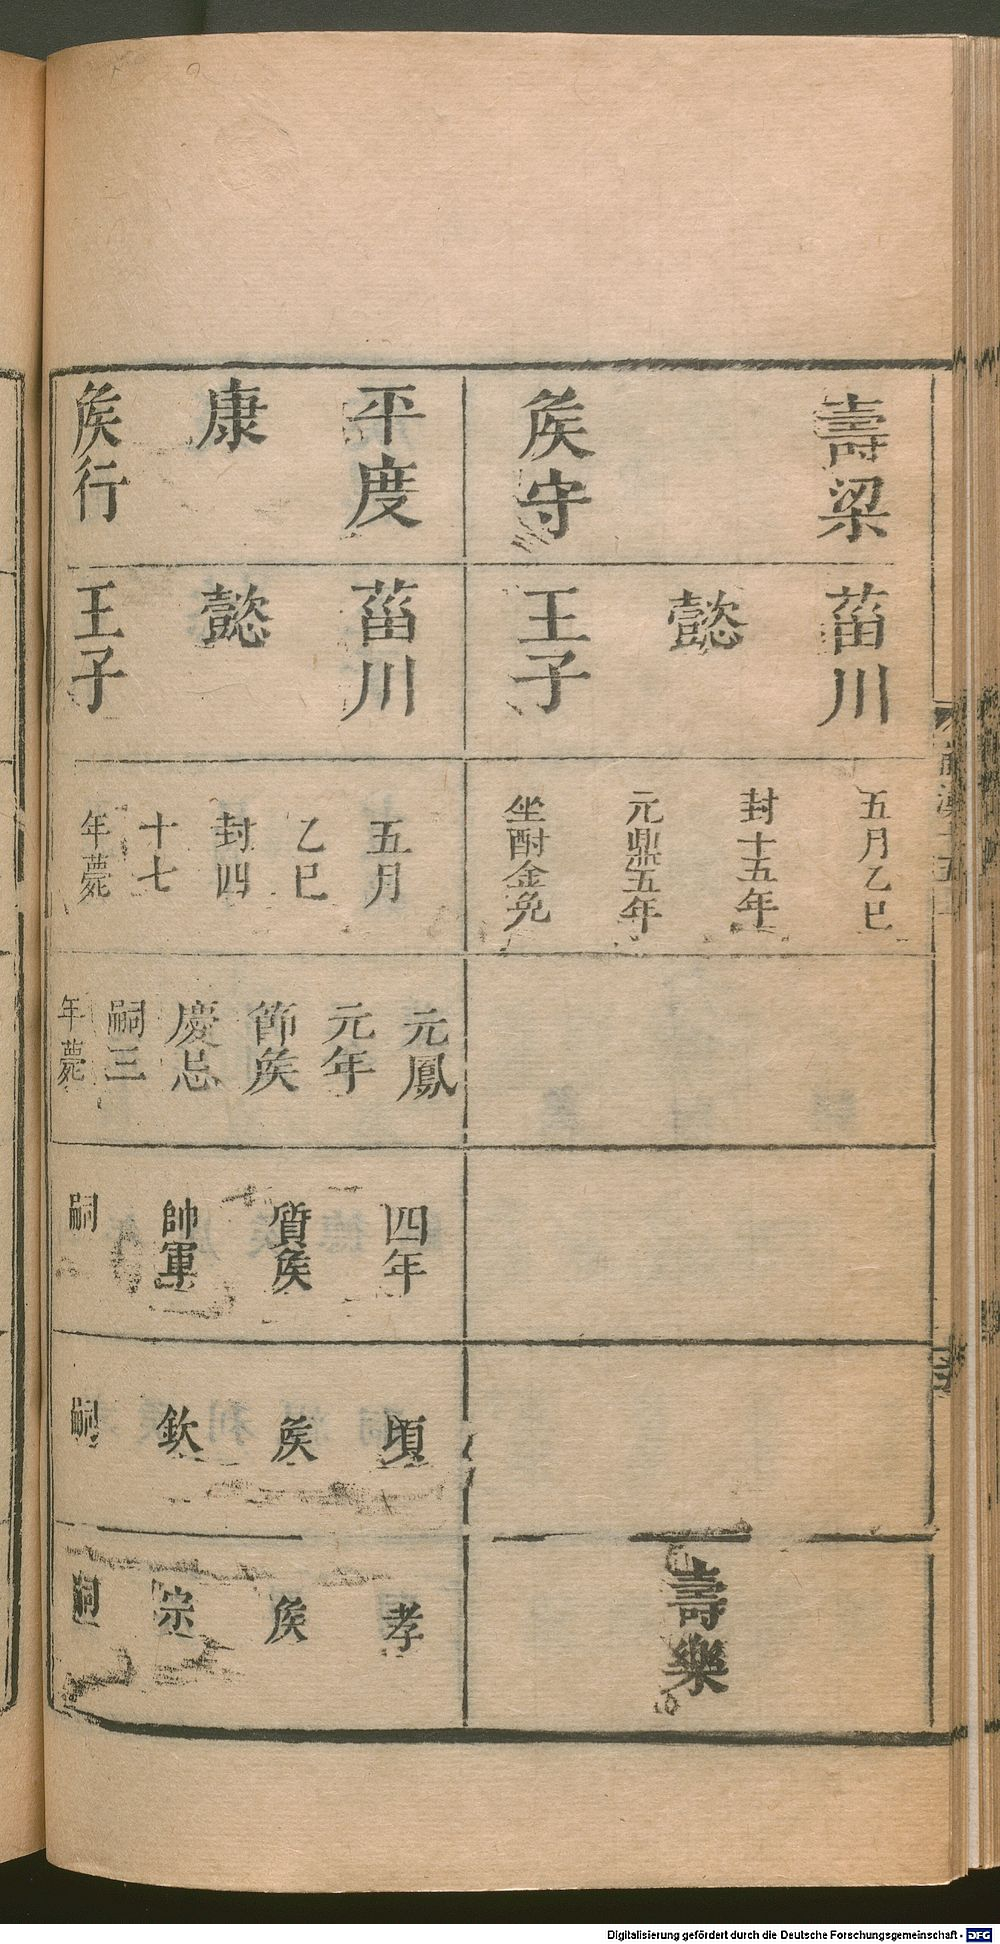 壽梁
矦守
菑川
懿
王子
五月乙巳
封十五年
元鼎五年
坐酎金免
壽樂
平度
康
矦行
菑川
懿
王子
五月
乙巳
封四
十七
年薨
元鳳
元年
節矦
慶忌
嗣三
年薨
四年
質矦
帥軍
嗣
頃
矦
欽
嗣
孝
矦
宗
嗣
Digitalisierung gefördert durch die Deutsche Forschungsgemeinschaft - DFG